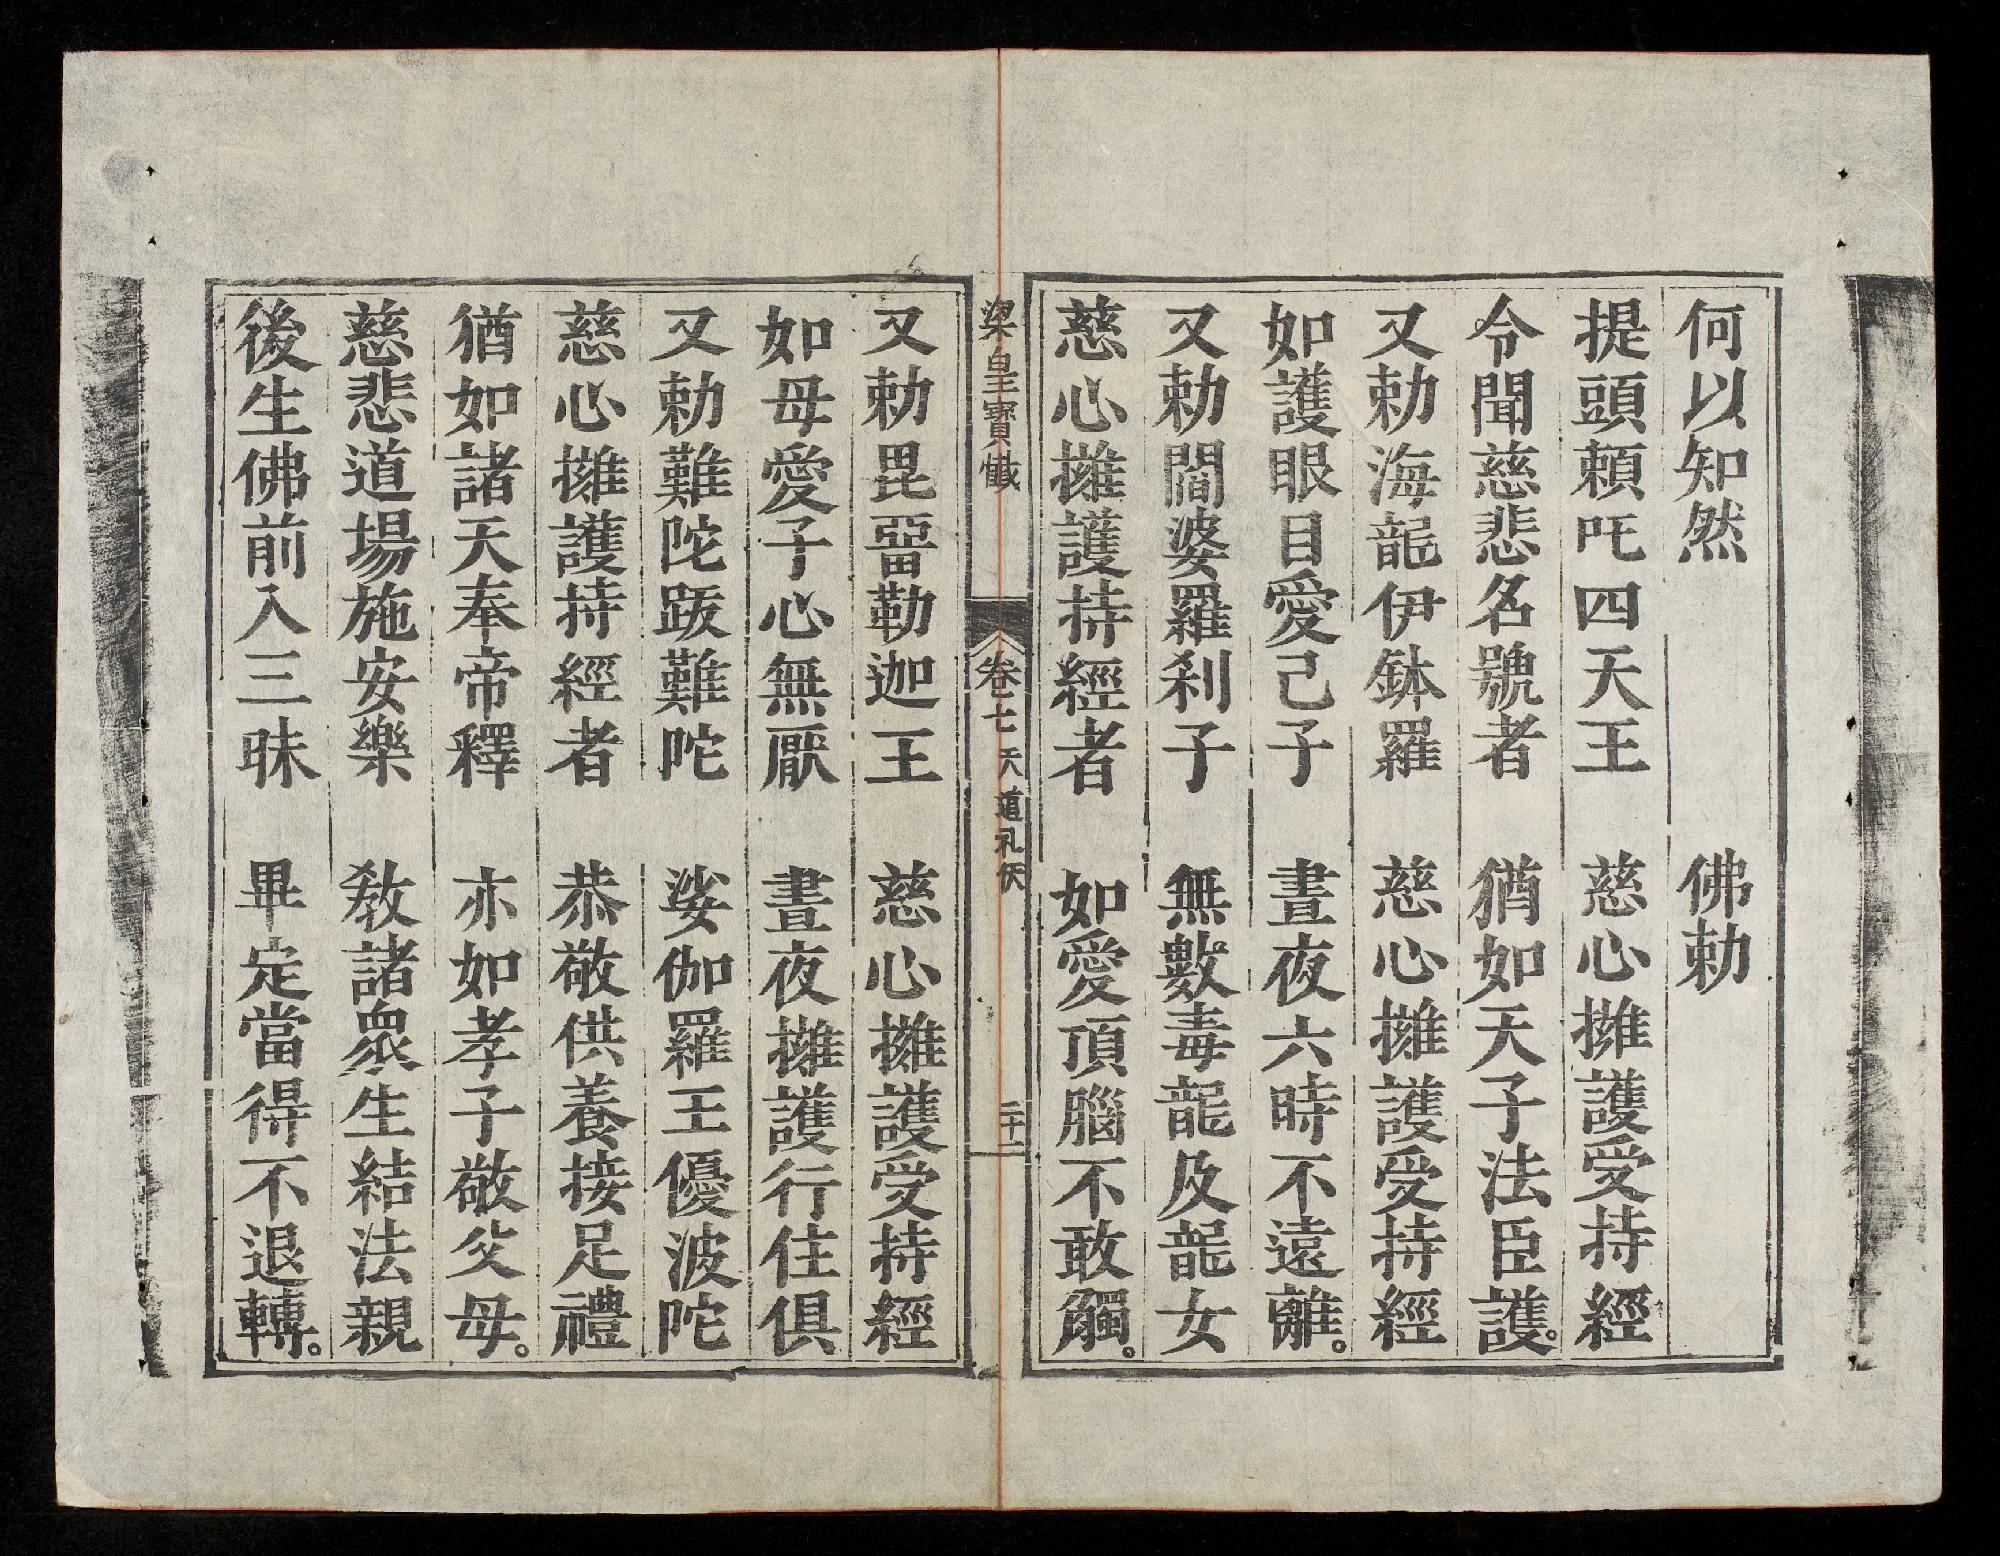 何以知然　佛勅
提頭頼吒四天王　慈心擁護受持經
令聞慈悲名號者　猶如天子法臣護。
又勅海龍伊鉢羅　慈心擁護受持經
如護眼目愛己子　晝夜六時不遠離。
又勅閻婆羅刹子　無數毒龍及龍女
慈心擁護持經者　如愛頂腦不敢觸。
梁皇寶懺　卷七　天道礼佛　二十二
又勅毘畱勒迦王　慈心擁護受持經
如母愛子心無厭　晝夜擁護行住俱
又勅難陀跋難陀　娑伽羅王優波陀
慈心擁護持經者　恭敬供養接足禮
猶如諸天奉帝釋　亦如孝子敬父母。
慈悲道場施安樂　教諸衆生結法親
後生佛前入三昧　畢定當得不退轉。